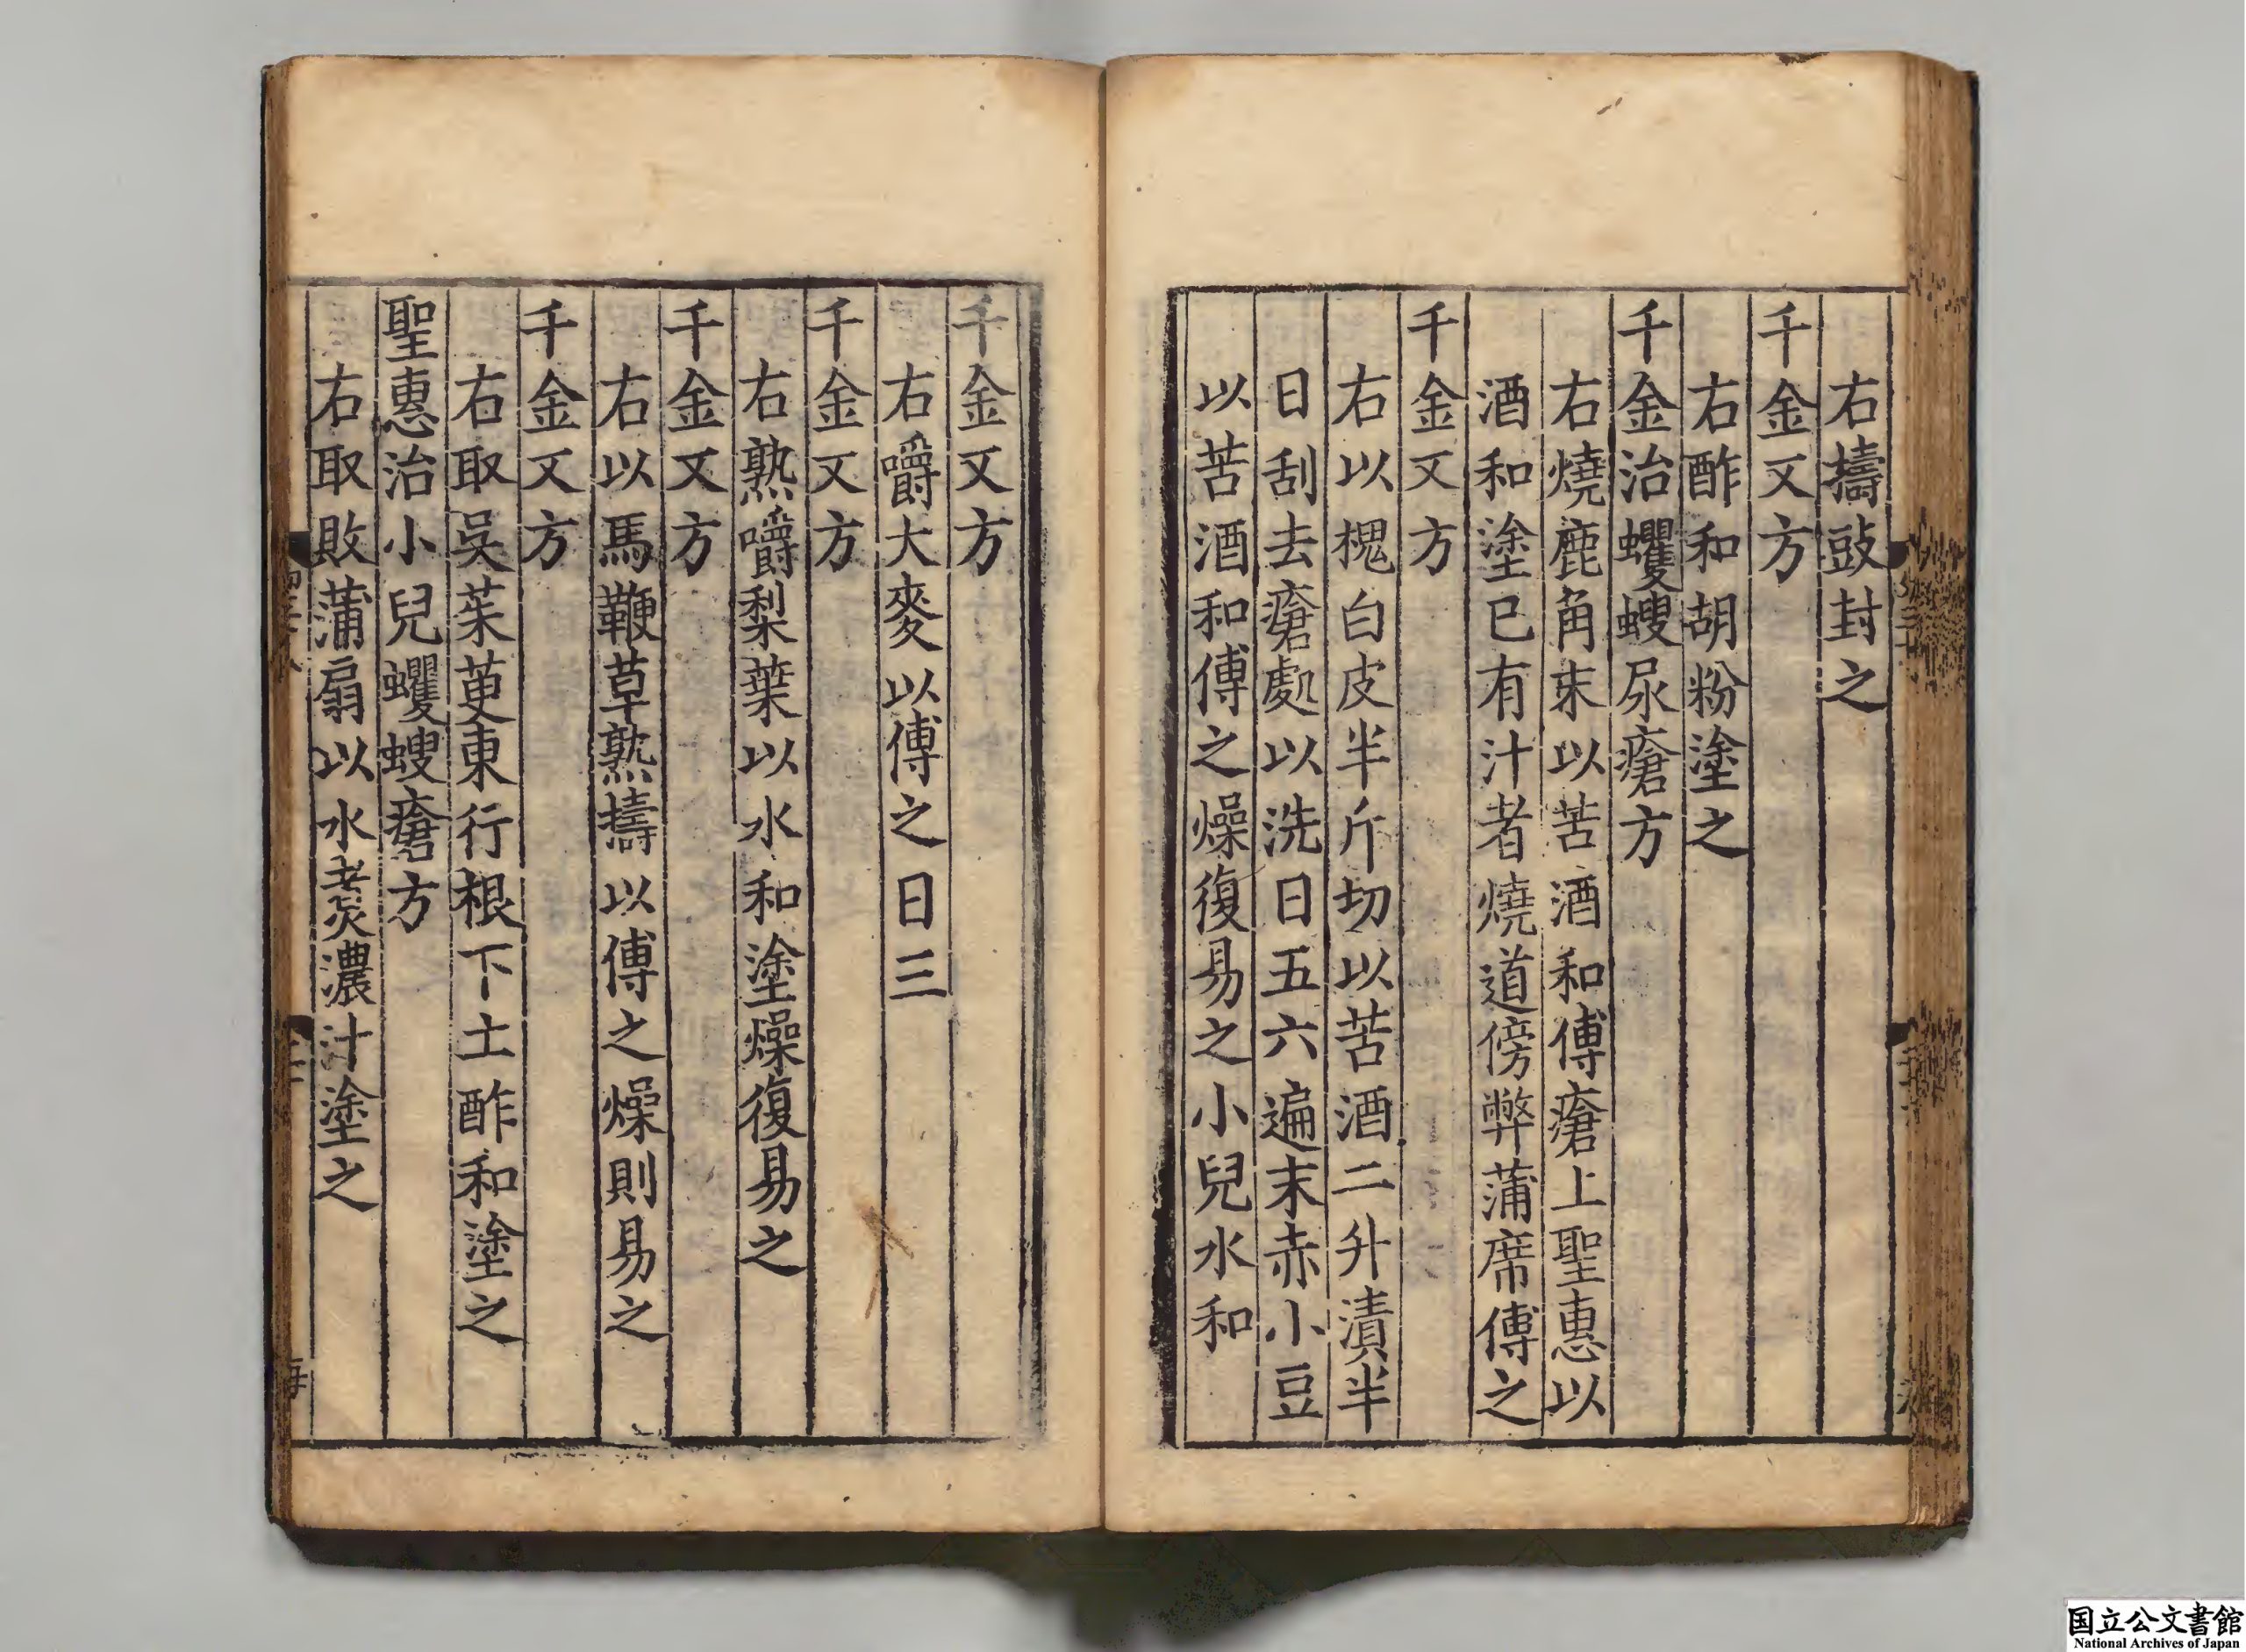 右擣豉封之
千金又方
右酢和胡粉塗之
千金治蠷螋尿瘡方
右燒鹿角末以苦酒和傅瘡上聖惠以
酒和塗已有汁者燒道傍弊蒲席傅之
千金又方
右以槐白皮半斤切以苦酒二升漬半
日刮去瘡處以洗日五六遍末赤小豆
以苦酒和傅之燥復易之小兒水和
千金又方
右嚼大麥以傅之日三
千金又方
右熟嚼梨葉以水和塗燥復易之
千金又方
右以馬鞭草熟擣以傅之燥則易之
千金又方
右取吳茱萸東行根下土酢和塗之
聖惠治小兒蠷螋瘡方
右取敗蒲扇以水煑濃汁塗之
国立公文書館
National Archives of Japan